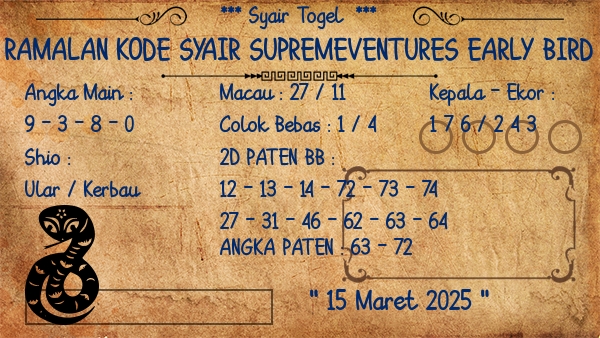 *** Syair Togel ***
RAMALAN KODE SYAIR SUPREMEVENTURES EARLY BIRD
Angka Main :
9 - 3 - 8 - 0
Shio :
Ular / Kerbau
Macau : 27 / 11
Colok Bebas : 1 / 4
2D PATEN BB :
12 - 13 - 14 - 72 - 73 - 74
27 - 31 - 46 - 62 - 63 - 64
ANGKA PATEN : 63 - 72
Kepala - Ekor :
1 7 6 / 2 4 3
" 15 Maret 2025 "